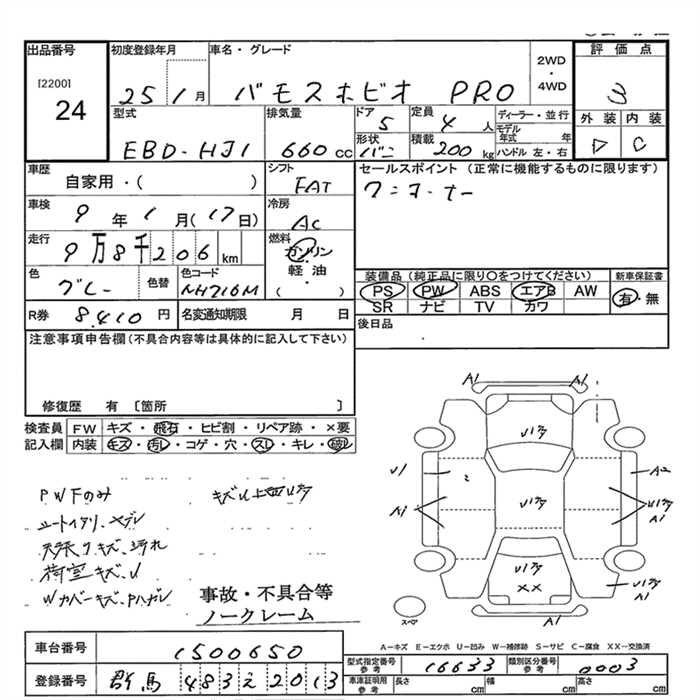 出品番号 初度登録年月 車名・グレード 2WD・4WD 評価点
[2200] 24 25 1月 バモスホビオ PRO 3
型式 排気量 ドア 5 定員 4人 ディーラー・並行 外装 内装
EBD-HJ1 660cc 形状 バン 積載 200kg モデル年式 年 ハンドル 左・右 C
車歴 自家用・( ) シフト FAT セールスポイント(正常に機能するものに限ります)
ワンオーナー
車検 9年 1月(17日) 冷房 AC
走行 9万8千206km 燃料 ガソリン・軽油・( )
装備品(純品品に限り○をつけてください) 新車保証書
色 グレー 色替 色コード NH716M
PS PW ABS エアB AW 有・無
SR ナビ TV カワ
R券 8,410円 名変通知期限 月 日 後日品
注意事項申告欄(不具合内容等は具体的に記入して下さい)
修復歴 有 〔箇所 〕
検査員 FW キズ・飛石・ヒビ割・リペア跡・×要
記入欄 内装 キズ・汚レ・コゲ・穴・スレ・キレ・破レ
PWFのみ
天張りキズ、汚れ
荷室キズ、U
事故・不具合等
ノークレーム
A1 A1
Uワク
U1 A2
A1 Uワク Uワク A1
Uワク ×× Uワク A1
スペア A1
A-キズ E-エクボ U-凹み W-補修跡 S-サビ C-腐食 XX-交換済
車台番号 1500650
型式指定番号 参考 16633 類別区分番号 参考 0003
登録番号 群馬 483 え 2013
車庫証明用 参考 長さ cm 幅 cm 高さ cm